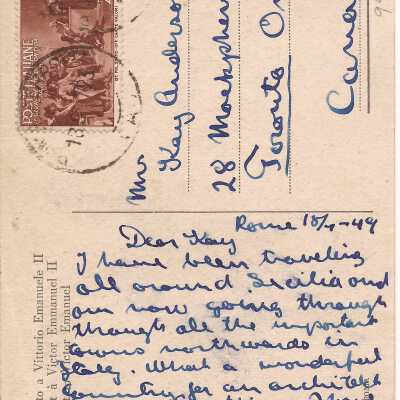 POSTE ITALIANE
Mr
Kay Anderso
28 Macpher
Toronto On
Cana
to a Vittorio Emanuele II
t à Victor Emmanuel II
to Victor Emanuel
Rome 18/4-49
Dear Kay
I have been traveling
all around Sicilia and
am now going through
through all the important
towns northwards in
Italy. What a wonderful
country for an architect